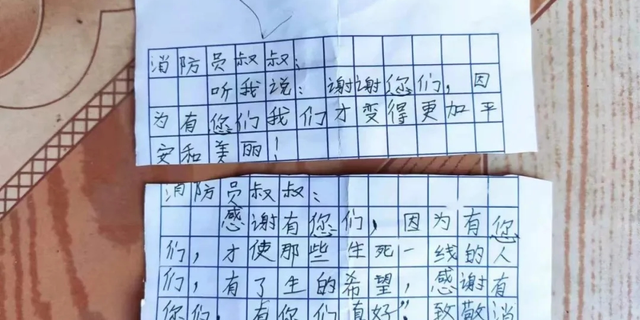 消防员叔叔：
听我说：谢谢您们，因
为有您们我们才变得更加平
安和美丽！
消防员叔叔：
感谢有您们，因为有您
们，才使那些生死一线的人
们，有了生的希望，感谢有
您们，有你们真好"致敬消